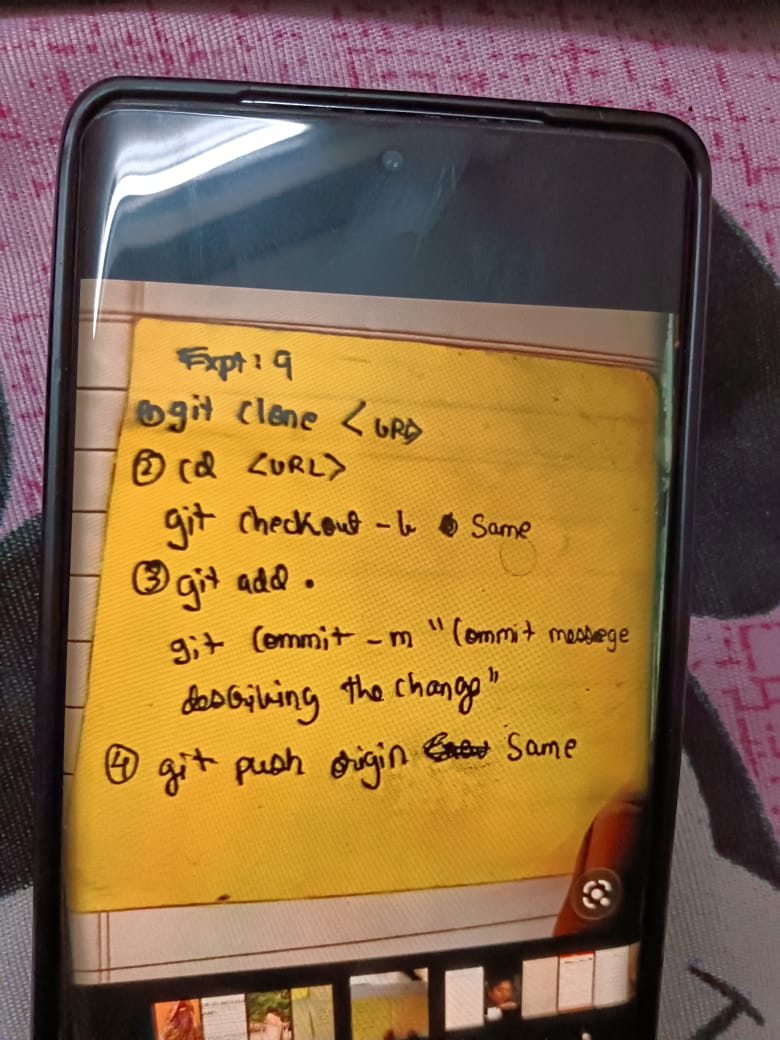 Expt: 9
① git clone <URL>
② cd <URL>
git checkout -b Same
③ git add .
git Commit -m "Commit message
describing the change"
④ git push origin Same